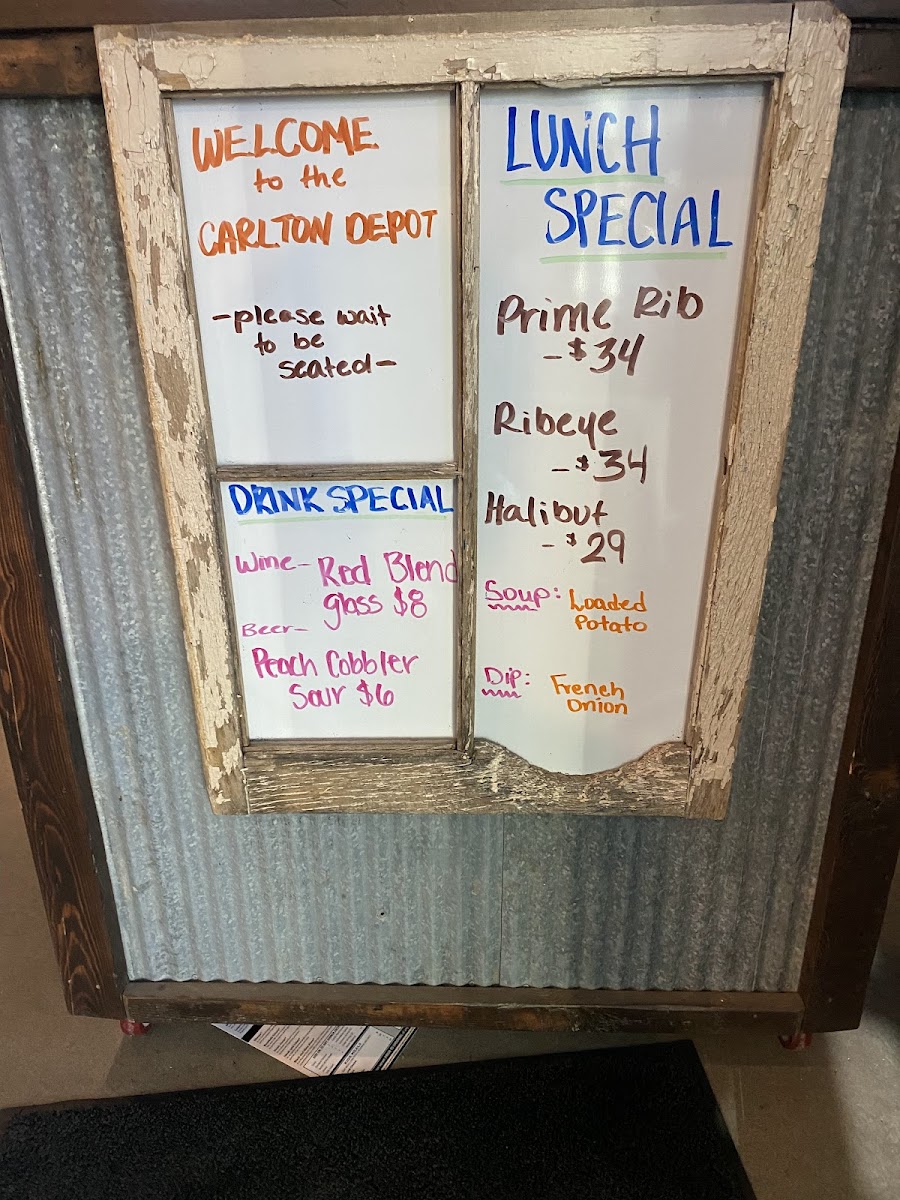 WELCOME
to the
CARLTON DEPOT
-please wait
to be
seated-
DRINK SPECIAL
Wine- Red Blend
glass $8
Beer-
Peach Cobbler
Sour $6
LUNCH
SPECIAL
Prime Rib
-$34
Ribeye
-$34
Halibut
-$29
Soup: Loaded
Potato
Dip: French
Onion